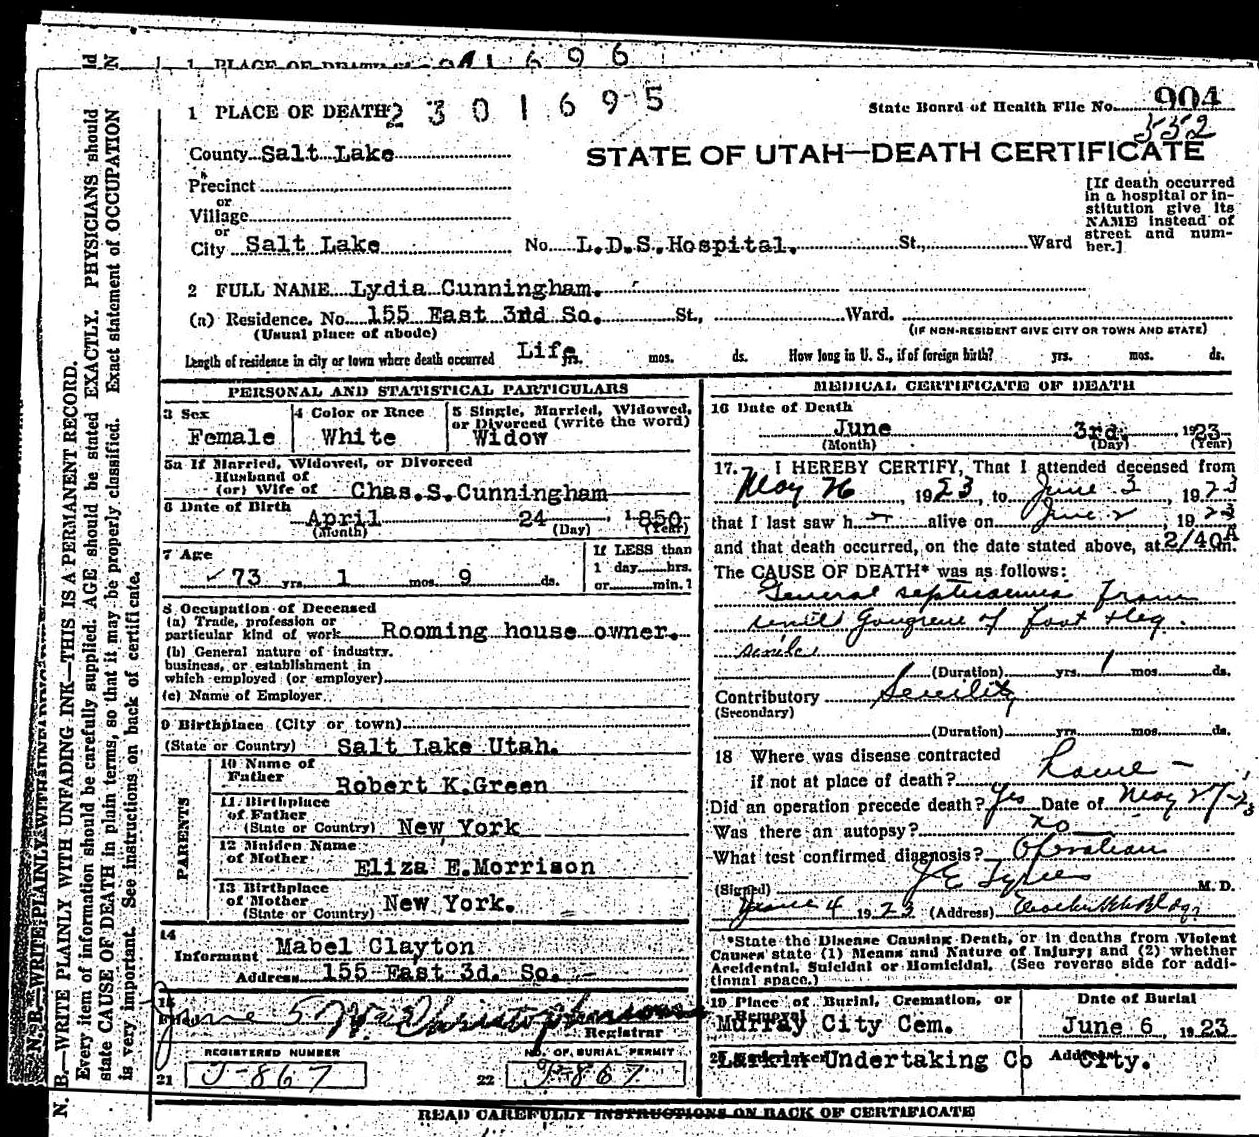 1 PLACE OF DEATH 1 6 9 6
1 PLACE OF DEATH 2 3 0 1 6 9 5
State Board of Health File No. 904
352
County Salt Lake
STATE OF UTAH—DEATH CERTIFICATE
Precinct
or
Village
or
City Salt Lake No. L.D.S. Hospital. St., Ward
[If death occurred
in a hospital or in-
stitution give its
NAME instead of
street and num-
ber.]
2 FULL NAME Lydia Cunningham.
(a) Residence. No. 155 East 3rd So. St., Ward.
(Usual place of abode) (IF NON-RESIDENT GIVE CITY OR TOWN AND STATE)
Length of residence in city or town where death occurred Life yrs. mos. ds. How long in U. S., if of foreign birth? yrs. mos. ds.
PERSONAL AND STATISTICAL PARTICULARS
3 Sex
Female
4 Color or Race
White
5 Single, Married, Widowed,
or Divorced (write the word)
Widow
5a If Married, Widowed, or Divorced
Husband of
(or) Wife of Chas.S.Cunningham
6 Date of Birth
April 24 1850
(Month) (Day) (Year)
7 Age
73 yrs. 1 mos. 9 ds.
If LESS than
1 day hrs.
or min.?
8 Occupation of Deceased
(a) Trade, profession or
particular kind of work Rooming house owner.
(b) General nature of industry,
business, or establishment in
which employed (or employer)
(c) Name of Employer
9 Birthplace (City or town)
(State or Country) Salt Lake Utah.
PARENTS
10 Name of
Father
Robert K.Green
11 Birthplace
of Father
(State or Country) New York
12 Maiden Name
of Mother
Eliza E.Morrison
13 Birthplace
of Mother
(State or Country) New York.
14
Informant Mabel Clayton
Address 155 East 3d. So.
15
June 5 Wm Christophersons
Registrar
REGISTERED NUMBER NO. OF BURIAL PERMIT
21 J-867 22 J-867
MEDICAL CERTIFICATE OF DEATH
16 Date of Death
June 3rd. 1923
(Month) (Day) (Year)
17. I HEREBY CERTIFY, That I attended deceased from
May 26, 1923, to June 3, 1923
that I last saw h alive on June 2, 1923
and that death occurred, on the date stated above, at 2/40A m.
The CAUSE OF DEATH* was as follows:
General septicaemia from
senile Gangrene of foot & leg.
senile
(Duration) yrs. 1 mos. ds.
Contributory Senility
(Secondary)
(Duration) yrs. mos. ds.
18 Where was disease contracted
if not at place of death? Home -
Did an operation precede death? Yes Date of May 27-23
Was there an autopsy? no
What test confirmed diagnosis? Operation
(Signed) J E M. D.
June 4 1923 (Address)
*State the Disease Causing Death, or in deaths from Violent
Causes state (1) Means and Nature of Injury; and (2) whether
Accidental, Suicidal or Homicidal. (See reverse side for addi-
tional space.)
19 Place of Burial, Cremation, or
Removal
Murray City Cem.
Date of Burial
June 6 1923
20 Undertaker Larkin Undertaking Co Address City.
READ CAREFULLY INSTRUCTIONS ON BACK OF CERTIFICATE
N. B.—WRITE PLAINLY WITH UNFADING INK—THIS IS A PERMANENT RECORD.
Every item of information should be carefully supplied. AGE should be stated EXACTLY. PHYSICIANS should
state CAUSE OF DEATH in plain terms, so that it may be properly classified. Exact statement of OCCUPATION
is very important. See instructions on back of certificate.